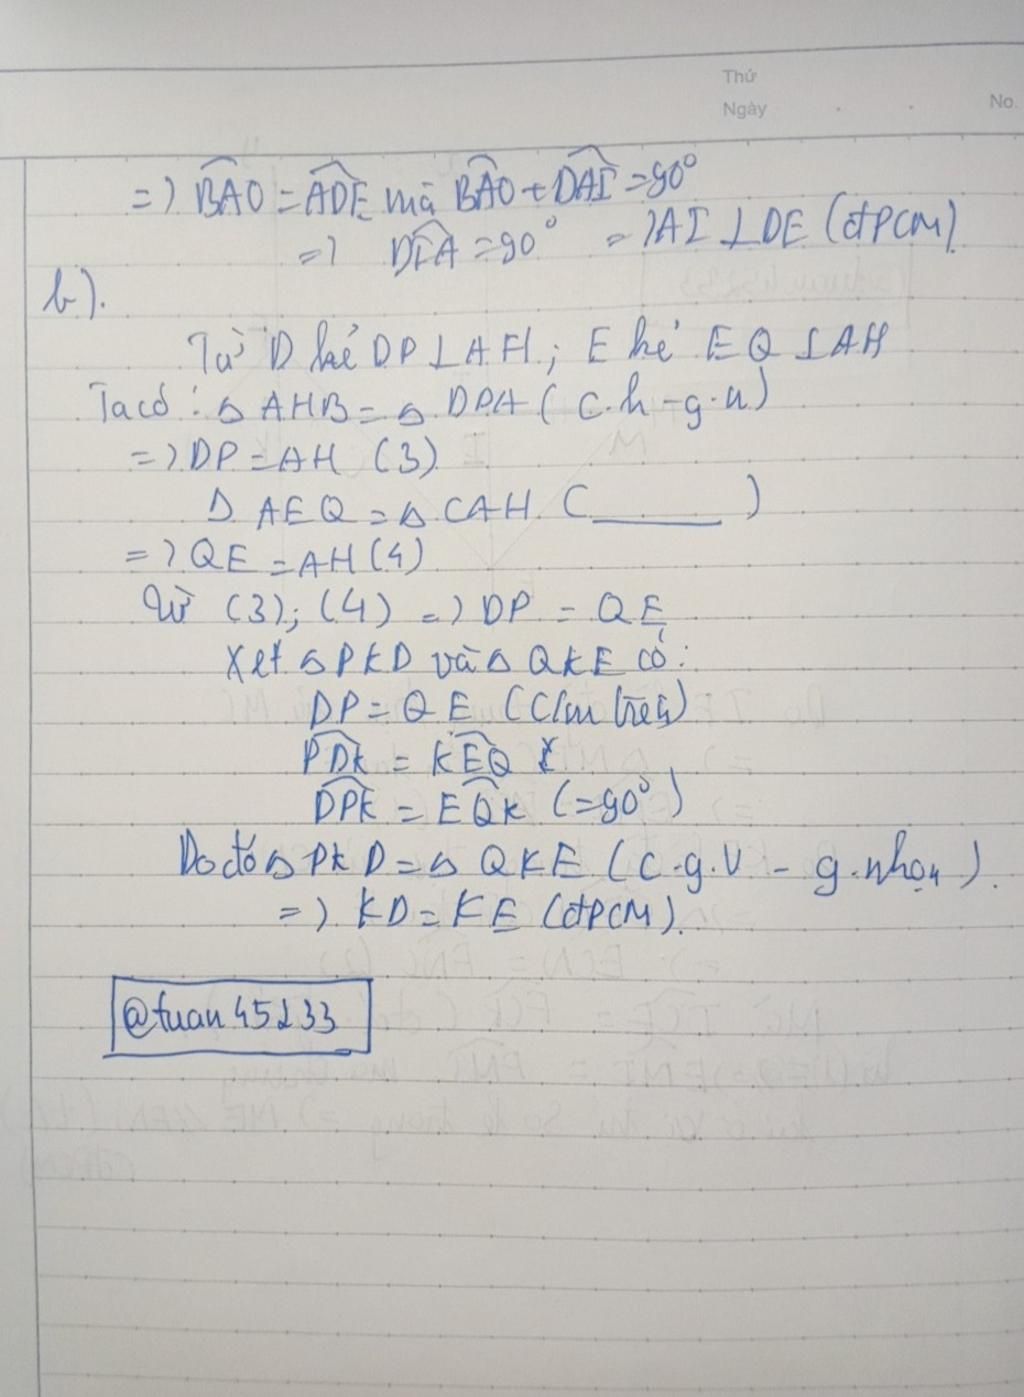 Thứ
Ngày
No.
=> BAO = ADE mà BAO + DAI = 90°
=> DIA = 90° => AI ⊥ DE (đPCM)
b).
Từ D kẻ DP ⊥ AH ; E kẻ EQ ⊥ AH
Ta có : Δ AHB = Δ DPA ( c.h - g.n )
=> DP = AH (3)
Δ AEQ = Δ CAH ( ______ )
=> QE = AH (4)
Từ (3); (4) => DP = QE
Xét Δ PKD và Δ QKE có:
DP = QE (C/m trên)
PDK = KEQ
DPK = EQK (=90°)
Do đó Δ PKD = Δ QKE ( C.g.V - g.nhọn ).
=> KD = KE (đPCM).
@tuan45233